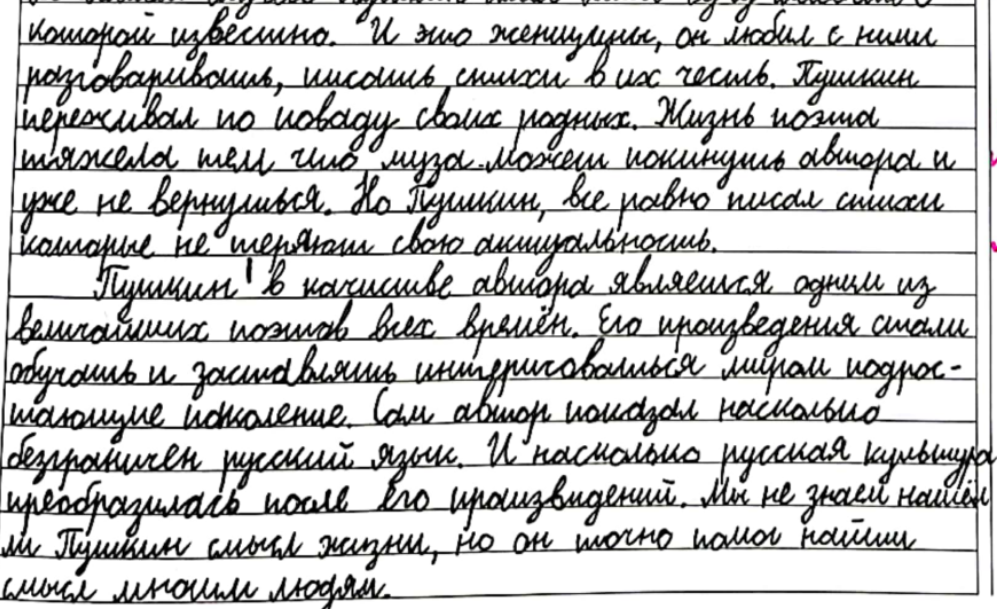 которой известно. И это женщины, он любил с ними
разговаривать, писать стихи в их честь. Пушкин
переживал по поваду своих родных. Жизнь поэта
тяжела тем что муза может покинуть автора и
уже не вернуться. Но Пушкин, все равно писал стихи
которые не теряют свою актуальность.
Пушкин в качистве автора является одним из
величайших поэтов всех времён. Его произведения стали
обучать и заставлять интериговаться миром подрос-
тающие поколение. Сам автор показал насколько
безграничен русский язык. И насколько русская культура
преобразилась после его произвидений. Мы не знаем нашёл
ли Пушкин смысл жизни, но он точно помог найти
смысл многим людям.